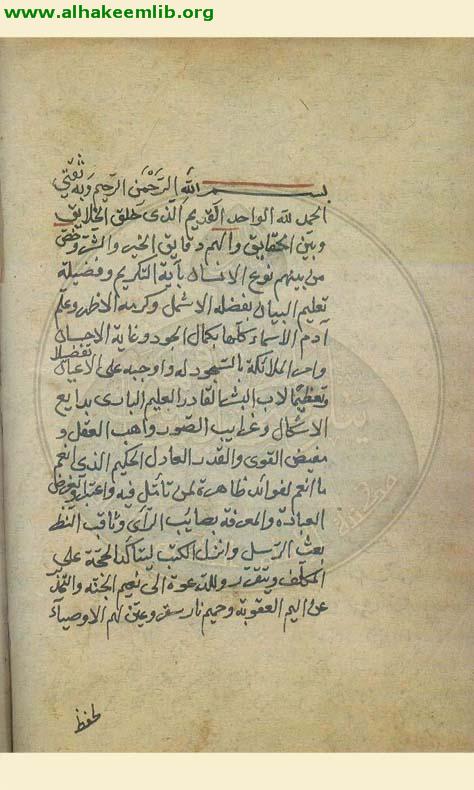 www.alhakeemlib.org
بسم الله الرحمن الرحيم وبه ثقتي
الحمد لله الواحد القديم الذى خلق الخلايق
وبين الحقايق والهم دقايق الخير والشر وخص
من بينهم نوع الانسان بآية التكريم وفضيلة
تعليم البيان بفضله الاشمل وكرمه الاظهر وعلم
آدم الاسماء كلها بكمال الجود وغاية الاحسان
وامر الملائكة بالسجود له واوجبه على الاعيان تفضلا
وتعظيما لاب البشر القادر العليم البارى بدايع
الاشكال وغرايب الصور واهب العقل و
مفيض القوى والقدر العادل الحكيم الذى انعم
ما انعم لفوائد ظاهرة لمن تأمل فيه واعتبر
العبادة والمعرفة بصايب الرأى وثاقب النظر
بعث الرسل وانزل الكتب ليتأكد الحجة على
المكلف ويتقرر وللدعوة الى نعيم الجنة
عن اليم العقوبة وحميم نار سقر وعين لهم الاوصياء
لحفظ